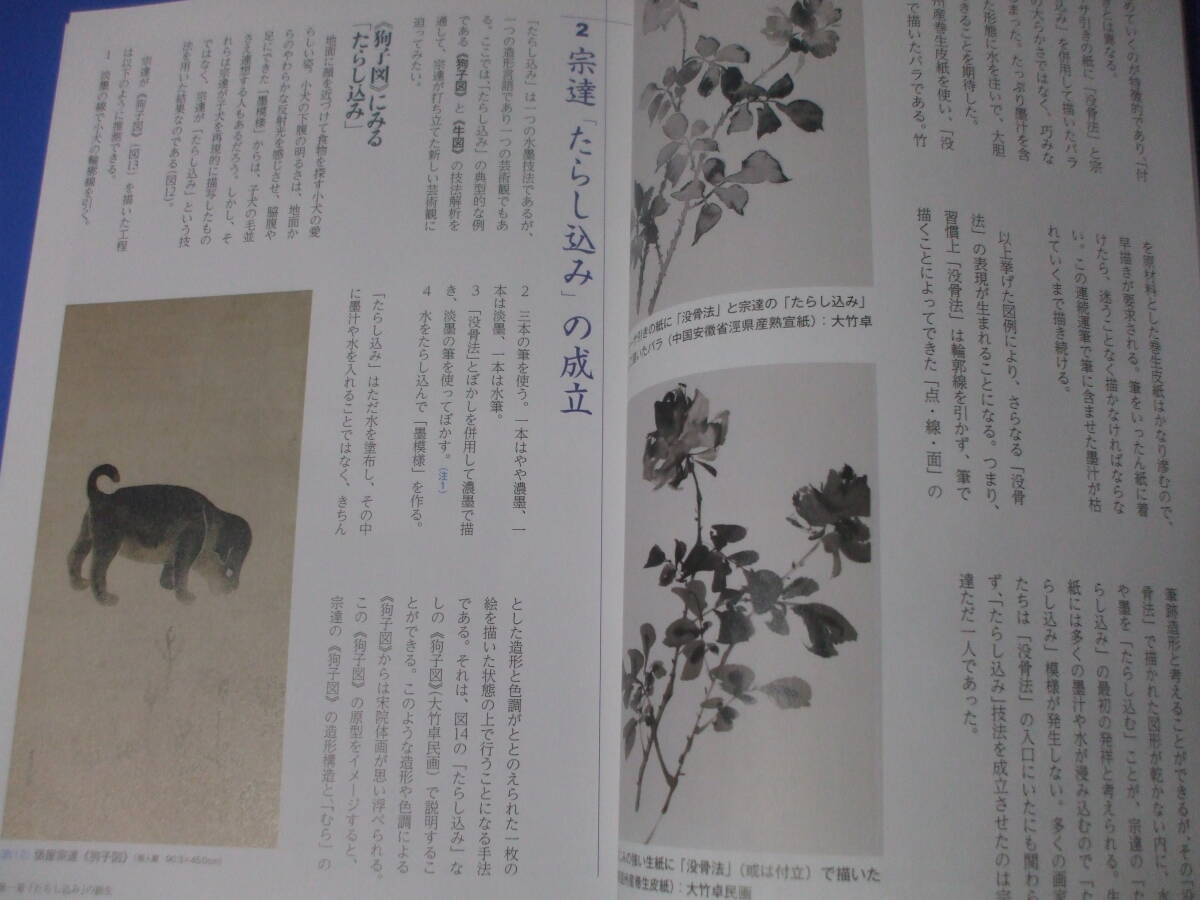 めていくのが特徴的であり、「付
きとは異なる。
サ引きの紙に「没骨法」と宗
込み」を併用して描いたバラ
の大らかさではなく、巧みな
まった。たっぷり墨汁を含
た形態に水を注いで、大胆
きることを期待した。
州産巻生皮紙を使い、「没
で描いたバラである。竹
を原材料とした巻生皮紙はかなり滲むので、
早描きが要求される。筆をいったん紙に着
けたら、迷うことなく描かなければならな
い。この連続運筆で筆に含ませた墨汁が枯
れていくまで描き続ける。
以上挙げた図例により、さらなる「没骨
法」の表現が生まれることになる。つまり、
習慣上「没骨法」は輪郭線を引かず、筆で
描くことによってできた「点・線・面」の
筆跡造形と考えることができるが、その「没
骨法」で描かれた図形が乾かない内に、水
や墨を「たらし込む」ことが、宗達の「た
らし込み」の最初の発祥と考えられる。生
紙には多くの墨汁や水が浸み込むので「た
らし込み」模様が発生しない。多くの画家
たちは「没骨法」の入口にいたにも関わら
ず、「たらし込み」技法を成立させたのは宗
達ただ一人であった。
引きの紙に「没骨法」と宗達の「たらし込み」
描いたバラ(中国安徽省涇県産熟宣紙):大竹卓
みの強い生紙に「没骨法」(或は付立)で描いた
州産巻生皮紙):大竹卓民画
2 宗達「たらし込み」の成立
「たらし込み」は一つの水墨技法であるが、
一つの造形言語であり一つの芸術観でもあ
る。ここでは、「たらし込み」の典型的な例
である《狗子図》と《牛図》の技法解析を
通して、宗達が打ち立てた新しい芸術観に
迫ってみたい。
《狗子図》にみる
「たらし込み」
地面に顔を近づけて食物を探す小犬の愛
らしい姿。小犬の下腹の明るさは、地面か
らのやわらかな反射光を感じさせ、脇腹や
足にできた「墨模様」からは、子犬の毛並
さえ連想する人もあるだろう。しかし、そ
れらは宗達が子犬を再現的に描写したもの
ではなく、宗達が「たらし込み」という技
法を用いた結果なのである(図12)。
宗達が《狗子図》(図13)を描いた工程
は以下のように推測できる。
1 淡墨の線で小犬の輪郭線を引く。
2 三本の筆を使う。一本はやや濃墨、一
本は淡墨、一本は水筆。
3 「没骨法」とぼかしを併用して濃墨で描
き、淡墨の筆を使ってぼかす。(注1)
4 水をたらし込んで「墨模様」を作る。
「たらし込み」はただ水を塗布し、その中
に墨汁や水を入れることではなく、きちん
とした造形と色調がととのえられた一枚の
絵を描いた状態の上で行うことになる手法
である。それは、図14の「たらし込み」な
しの《狗子図》(大竹卓民画)で説明するこ
とができる。このような造形や色調による
《狗子図》からは宋院体画が思い浮べられる。
この《狗子図》の原型をイメージすると、
宗達の《狗子図》の造形構造と、「むら」の
俵屋宗達《狗子図》(個人蔵 90.3×45.0cm)
第一章「たらし込み」の誕生